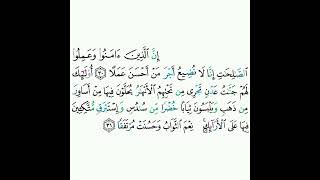 إِنَّ الَّذِينَ ءَامَنُوا وَعَمِلُوا
الصَّٰلِحَٰتِ إِنَّا لَا نُضِيعُ أَجْرَ مَنْ أَحْسَنَ عَمَلًا ٣٠ أُولَٰئِكَ
لَهُمْ جَنَّٰتُ عَدْنٍ تَجْرِي مِن تَحْتِهِمُ الْأَنْهَٰرُ يُحَلَّوْنَ فِيهَا مِنْ أَسَاوِرَ
مِن ذَهَبٍ وَيَلْبَسُونَ ثِيَابًا خُضْرًا مِّن سُندُسٍ وَإِسْتَبْرَقٍ مُّتَّكِـِٔينَ
فِيهَا عَلَى الْأَرَآئِكِ نِعْمَ الثَّوَابُ وَحَسُنَتْ مُرْتَفَقًا ٣١